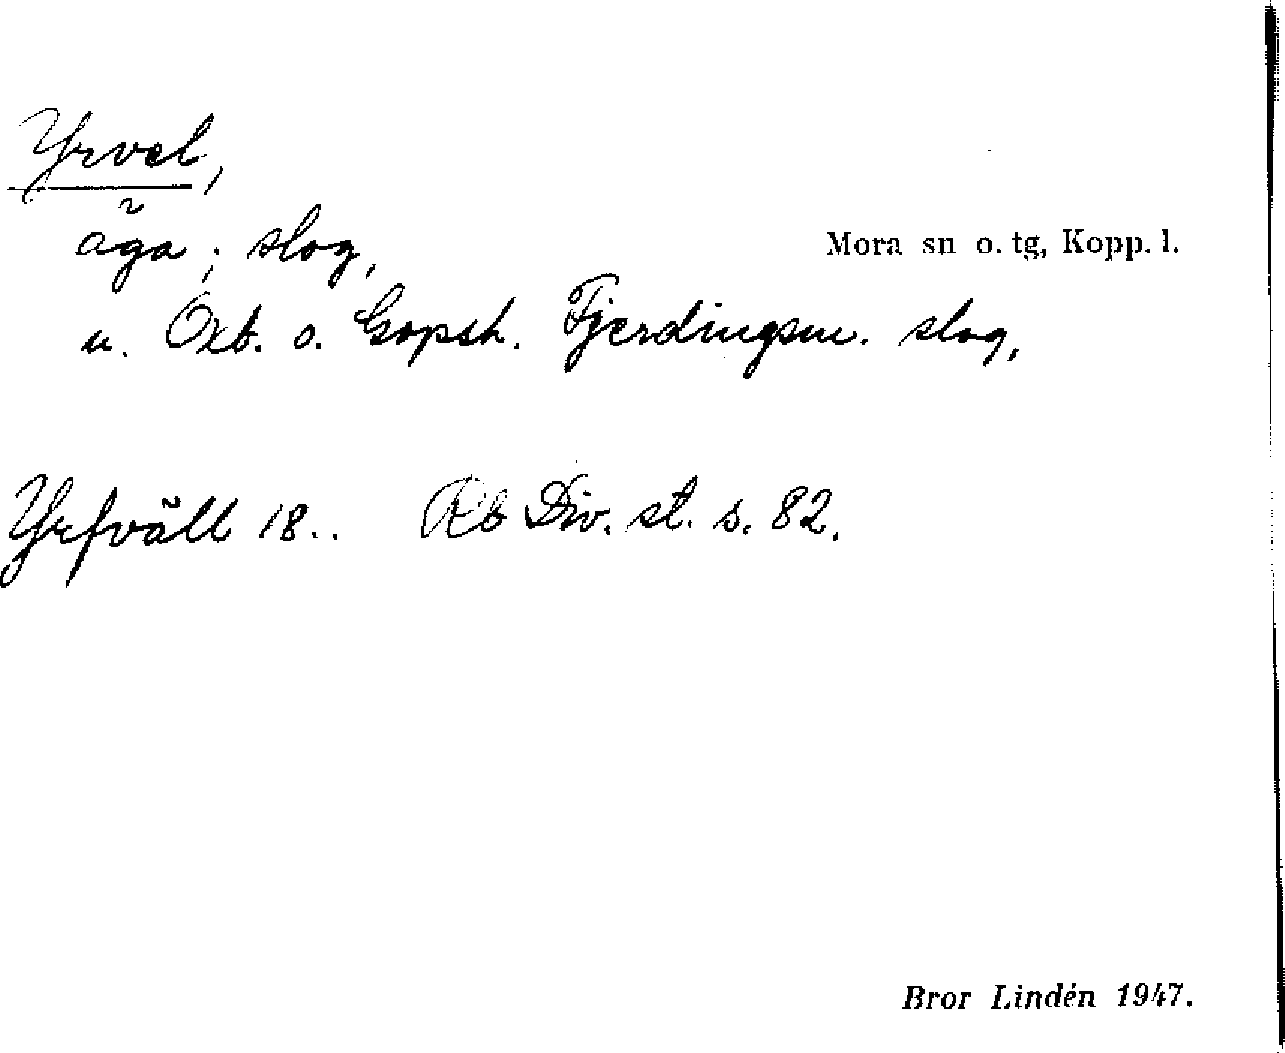 Yrvel,
äga; slog,
Mora sn o. tg, Kopp. l.
u. Oxb. o. Gopsh. Fjerdingsm. slog,
Yrfväll 18.. Rb Div. st. s. 82.
Bror Lindén 1947.